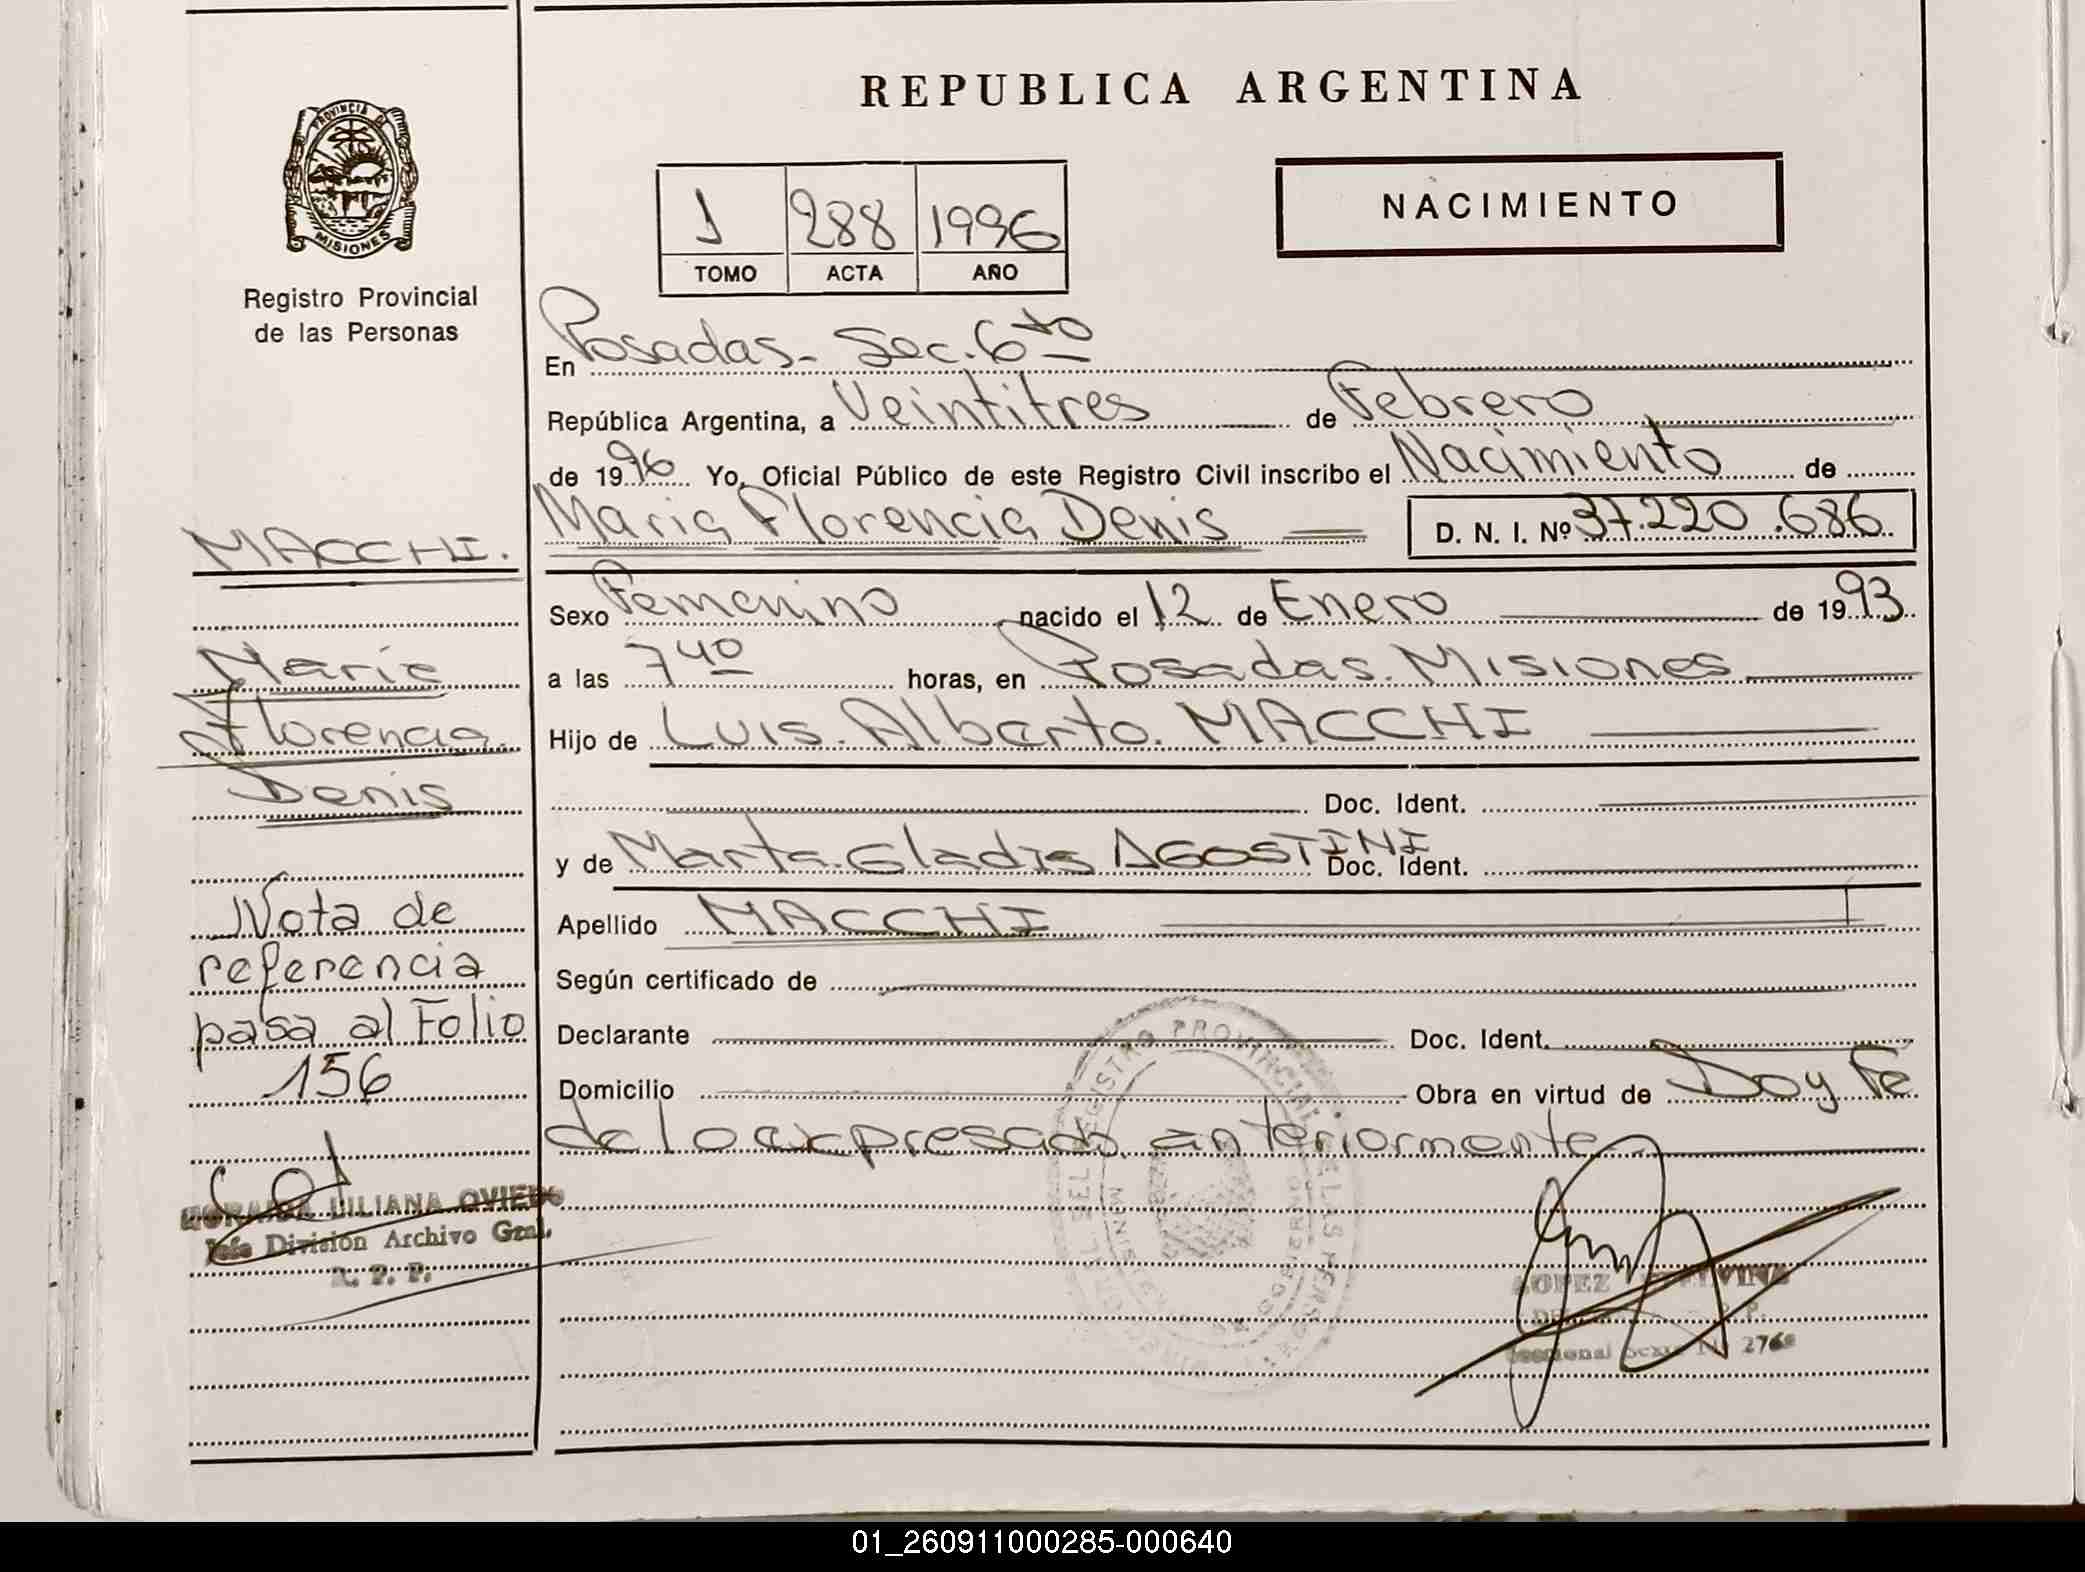 REPUBLICA ARGENTINA
PROVINCIA DE
MISIONES
Registro Provincial
de las Personas
1 288 1996
TOMO ACTA AÑO
NACIMIENTO
En Posadas - Sec. 6to
República Argentina, a Veintitres de Febrero
de 1996 Yo, Oficial Público de este Registro Civil inscribo el Nacimiento de
Maria Florencia Denis D. N. I. Nº 37.220.686
Sexo Femenino nacido el 12 de Enero de 1993
a las 7 40 horas, en Posadas. Misiones
Hijo de Luis. Alberto. MACCHI
Doc. Ident.
y de Marta. Gladis AGOSTINI Doc. Ident.
Apellido MACCHI
Según certificado de
Declarante Doc. Ident.
Domicilio Obra en virtud de Doy Fe
de lo expresado anteriormente
MACCHI.
Maria
Florencia
Denis
Nota de
referencia
pasa al Folio
156
LILIANA OVIEDO
Jefe División Archivo Gral.
R. P. P.
REGISTRO PROVINCIAL DE LAS PERSONAS
LOPEZ
276
01_260911000285-000640